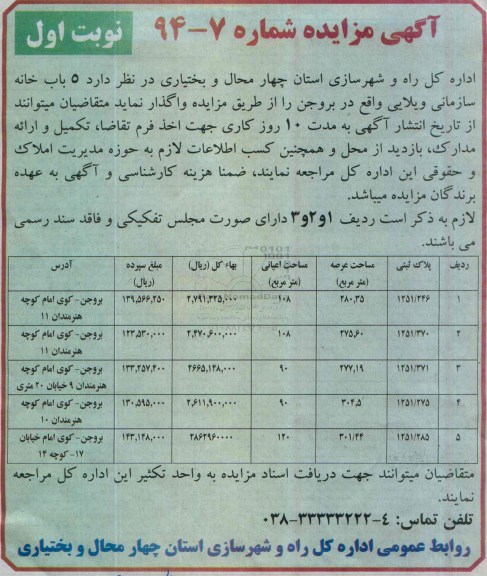 آگهی مزایده شماره ۷-۹۴
نوبت اول
اداره کل راه و شهرسازی استان چهار محال و بختیاری در نظر دارد ۵ باب خانه
سازمانی ویلایی واقع در بروجن را از طریق مزایده واگذار نماید متقاضیان میتوانند
از تاریخ انتشار آگهی به مدت ۱۰ روز کاری جهت اخذ فرم تقاضا، تکمیل و ارائه
مدارک، بازدید از محل و همچنین کسب اطلاعات لازم به حوزه مدیریت املاک
و حقوقی این اداره کل مراجعه نمایند، ضمنا هزینه کارشناسی و آگهی به عهده
برندگان مزایده میباشد.
لازم به ذکر است ردیف ۱و۲و۳ دارای صورت مجلس تفکیکی و فاقد سند رسمی
می باشند.
ردیف پلاک ثبتی مساحت عرصه (متر مربع) مساحت اعیانی (متر مربع) بهاء کل (ریال) مبلغ سپرده (ریال) آدرس
۱ ۱۲۵۱/۲۴۶ ۲۸۰,۳۵ ۱۰۸ ۲,۷۹۱,۳۲۵,۰۰۰ ۱۳۹,۵۶۶,۲۵۰ بروجن- کوی امام کوچه هنرمندان ۱۱
۲ ۱۲۵۱/۳۷۰ ۲۷۵,۶۰ ۱۰۸ ۲,۴۷۰,۶۰۰,۰۰۰ ۱۲۳,۵۳۰,۰۰۰ بروجن- کوی امام کوچه هنرمندان ۱۱
۳ ۱۲۵۱/۳۷۱ ۲۷۷,۱۹ ۹۰ ۲۶۶۵,۱۴۸,۰۰۰ ۱۳۳,۲۵۷,۴۰۰ بروجن- کوی امام کوچه هنرمندان ۹ خیابان ۲۰ متری
۴ ۱۲۵۱/۲۷۵ ۳۰۴,۵ ۹۰ ۲,۶۱۱,۹۰۰,۰۰۰ ۱۳۰,۵۹۵,۰۰۰ بروجن- کوی امام کوچه هنرمندان ۱۰
۵ ۱۲۵۱/۲۸۵ ۳۰۱/۴۴ ۱۲۰ ۲۸۶۲۹۶۰۰۰۰ ۱۴۳,۱۴۸,۰۰۰ بروجن- کوی امام خیابان ۱۷- کوچه ۱۴
متقاضیان میتوانند جهت دریافت اسناد مزایده به واحد تکثیر این اداره کل مراجعه
نمایند.
تلفن تماس: ۴-۳۳۳۳۳۲۲۲-۰۳۸
روابط عمومی اداره کل راه و شهرسازی استان چهار محال و بختیاری